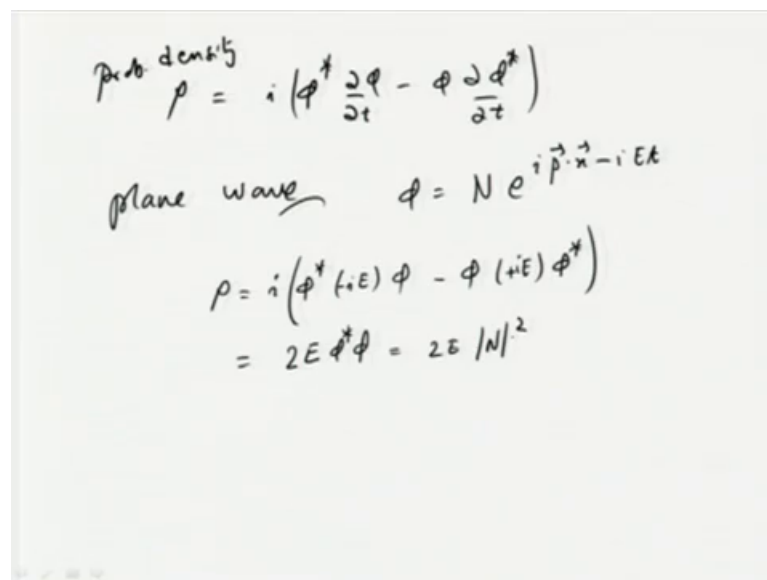 prob. density
ρ = i (φ* ∂φ/∂t - φ ∂φ*/∂t)
plane wave φ = N e^{i p⃗·x⃗ - i Et}
ρ = i (φ* (-iE) φ - φ (+iE) φ*)
= 2E φ*φ = 2E |N|²